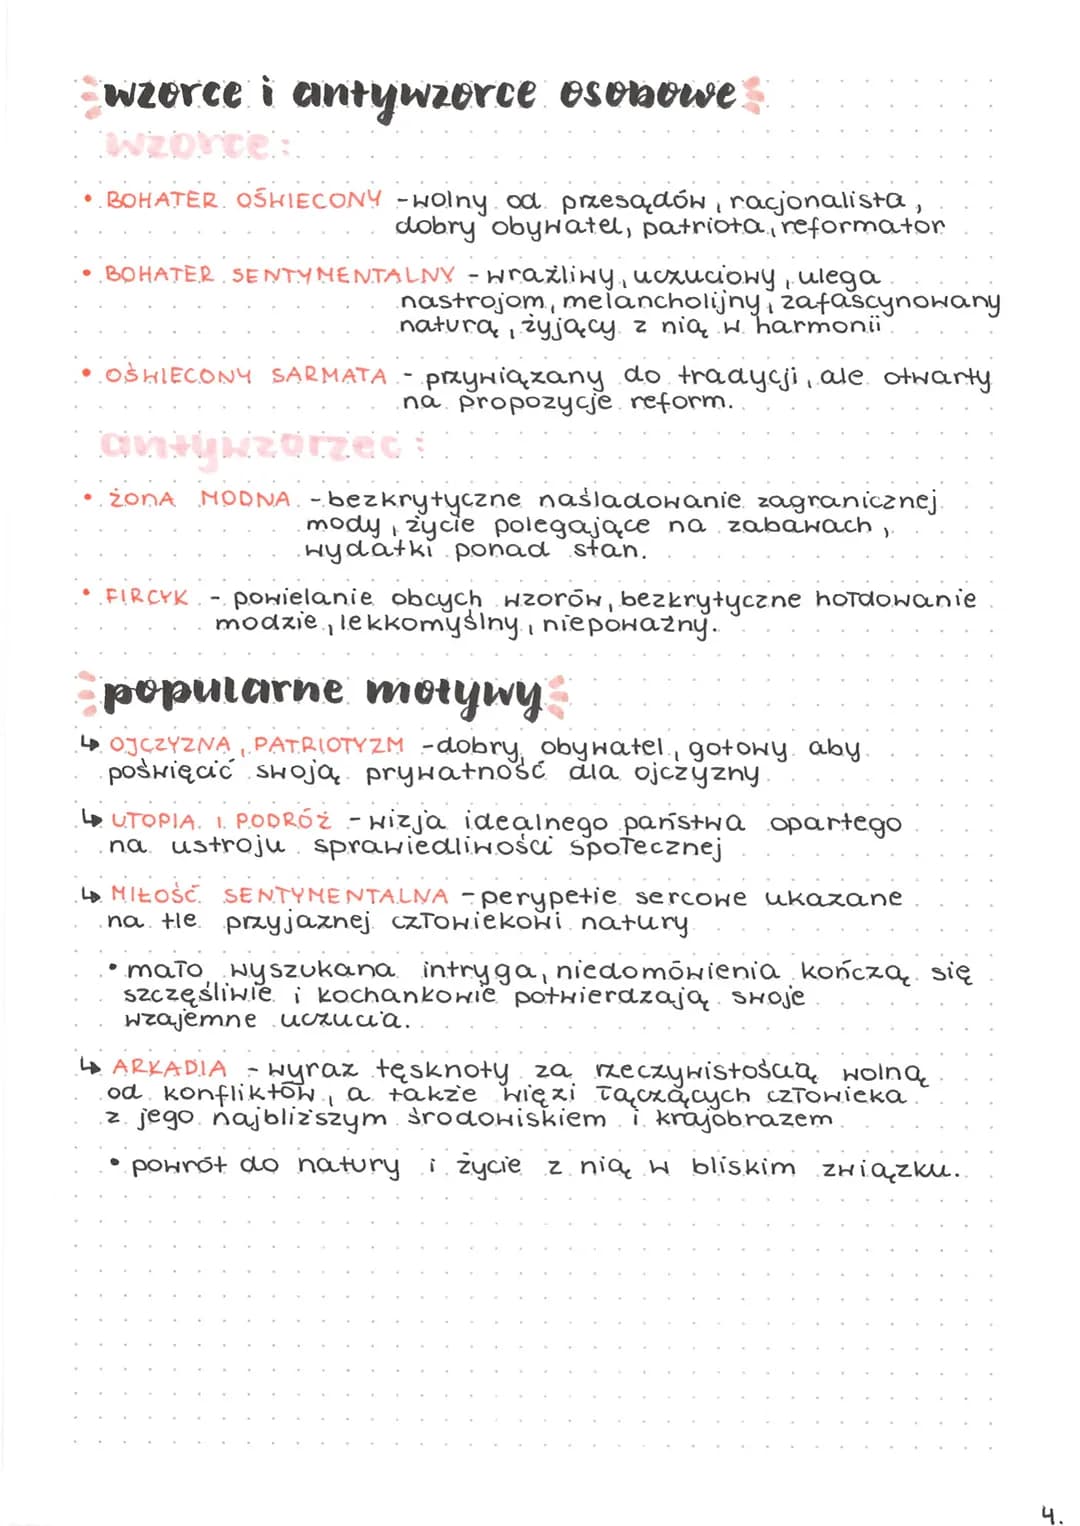 wzorce i antywzorce osobowe
wzorce:
• BOHATER OŚWIECONY - wolny od przesądów, racjonalista,
dobry obywatel, patriota, reformator
• BOHATER SENTYMENTALNY - wrażliwy, uczuciowy, ulega
nastrojom, melancholijny, zafascynowany
naturą, żyjący z nią w harmonii
• OŚWIECONY SARMATA - przywiązany do tradycji, ale otwarty
na propozycje reform.
antywzorzec:
• ŻONA MODNA - bezkrytyczne naśladowanie zagranicznej
mody, życie polegające na zabawach,
wydatki ponad stan.
• FIRCYK - powielanie obcych wzorów, bezkrytyczne hołdowanie
modzie, lekkomyślny, niepoważny.
popularne motywy
↳ OJCZYZNA, PATRIOTYZM - dobry obywatel, gotowy aby
poświęcić swoją prywatność dla ojczyzny
↳ UTOPIA I PODRÓŻ - wizja idealnego państwa opartego
na ustroju sprawiedliwości społecznej
↳ MIŁOŚĆ SENTYMENTALNA - perypetie sercowe ukazane
na tle przyjaznej człowiekowi natury
• mało wyszukana intryga, niedomówienia kończą się
szczęśliwie i kochankowie potwierdzają swoje
wzajemne uczucia.
↳ ARKADIA - wyraz tęsknoty za rzeczywistością wolną
od konfliktów, a także więzi łączących człowieka
z jego najbliższym środowiskiem i krajobrazem
• powrót do natury i życie z nią w bliskim związku.
4.